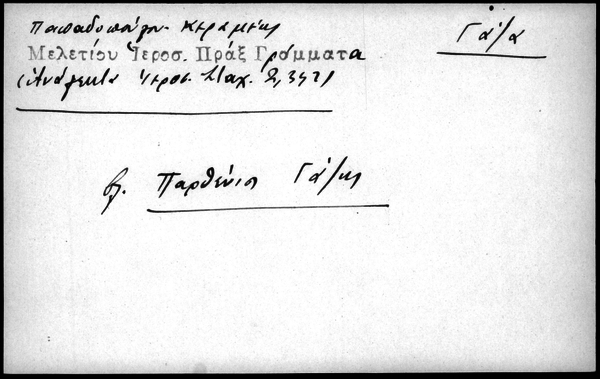 Παπαδοπούλου-Κεραμέως
Γάζα
Μελετίου Ἱεροσ. Πράξ Γράμματα
(Ἀνάλεκτα Ἱεροσ. Σταχ. 2, 342)
βλ. Παρθένιος Γάζης